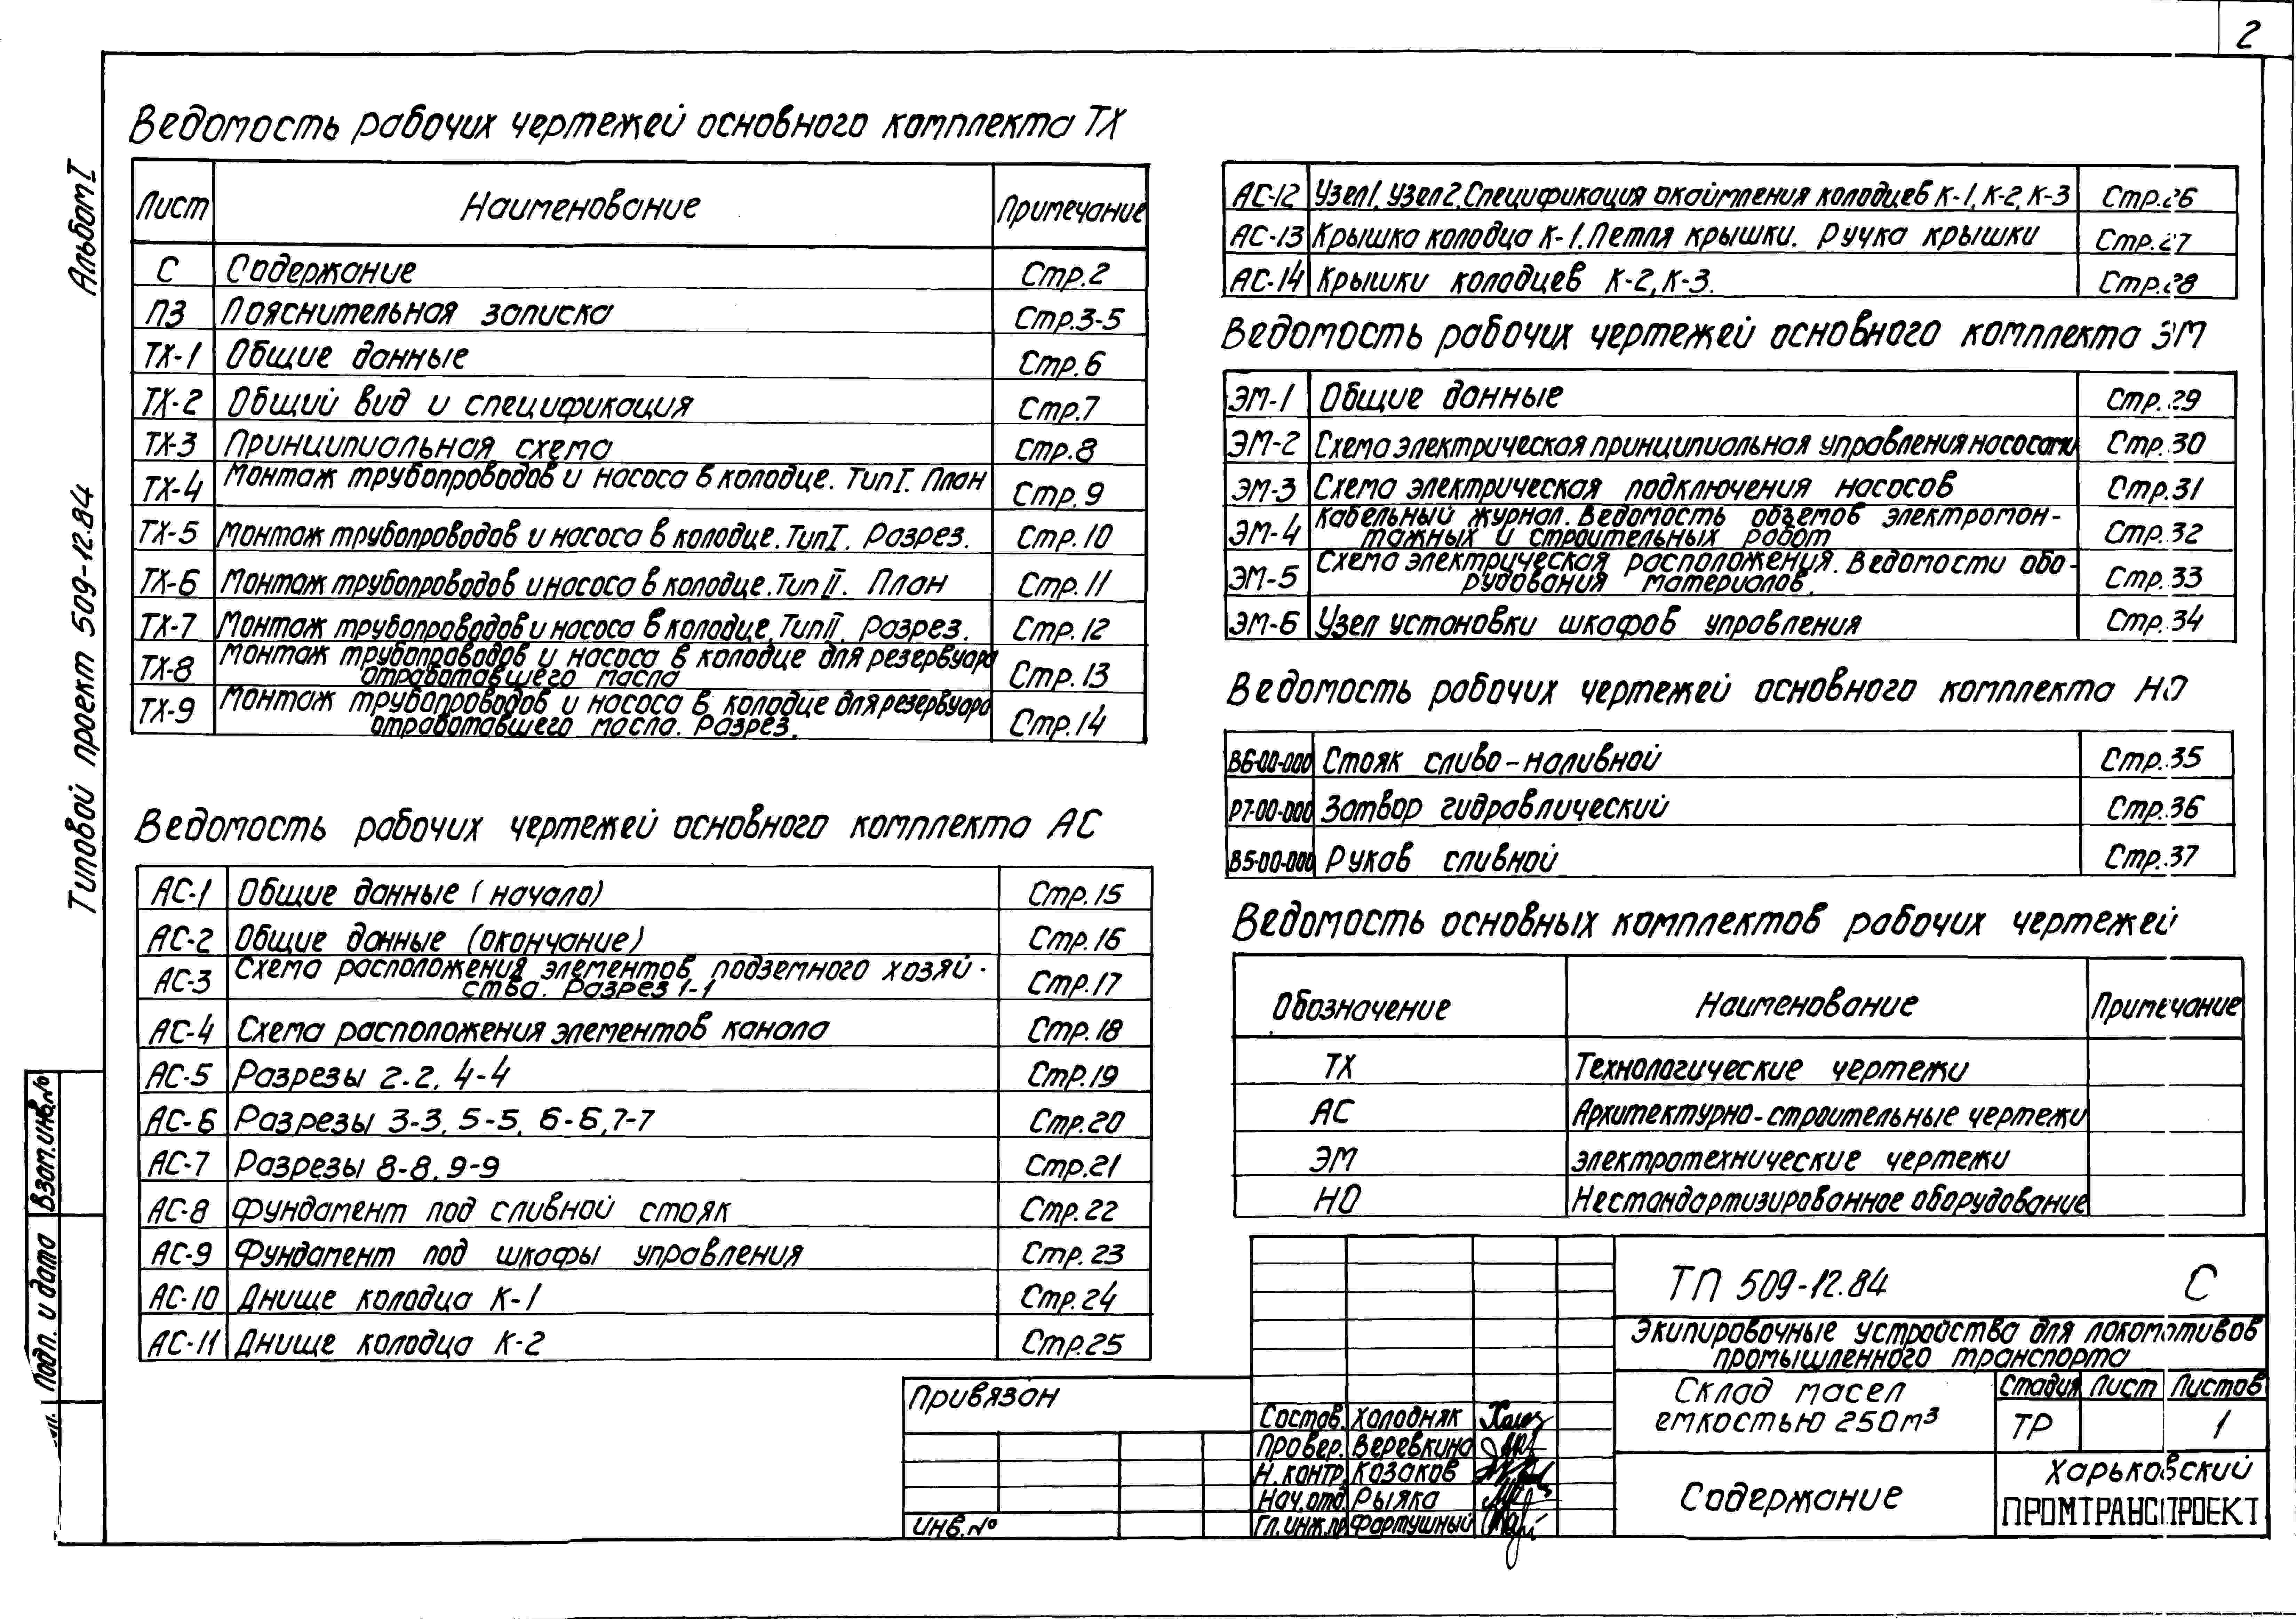 2
Альбом I
Типовой проект 509-12.84
Взам.инв.№
Подп. и дата
Ведомость рабочих чертежей основного комплекта ТХ
Лист Наименование Примечание
С Содержание Стр.2
ПЗ Пояснительная записка Стр.3-5
ТХ-1 Общие данные Стр.6
ТХ-2 Общий вид и спецификация Стр.7
ТХ-3 Принципиальная схема Стр.8
ТХ-4 Монтаж трубопроводов и насоса в колодце. Тип I. План Стр.9
ТХ-5 Монтаж трубопроводов и насоса в колодце. Тип I. Разрез. Стр.10
ТХ-6 Монтаж трубопроводов и насоса в колодце. Тип II. План Стр.11
ТХ-7 Монтаж трубопроводов и насоса в колодце. Тип II. Разрез. Стр.12
ТХ-8 Монтаж трубопроводов и насоса в колодце для резервуара Стр.13
отработавшего масла
ТХ-9 Монтаж трубопроводов и насоса в колодце для резервуара Стр.14
отработавшего масла. Разрез.
Ведомость рабочих чертежей основного комплекта АС
АС-1 Общие данные (начало) Стр.15
АС-2 Общие данные (окончание) Стр.16
АС-3 Схема расположения элементов подземного хозяй- Стр.17
ства. Разрез 1-1
АС-4 Схема расположения элементов канала Стр.18
АС-5 Разрезы 2-2, 4-4 Стр.19
АС-6 Разрезы 3-3, 5-5, 6-6, 7-7 Стр.20
АС-7 Разрезы 8-8, 9-9 Стр.21
АС-8 Фундамент под сливной стояк Стр.22
АС-9 Фундамент под шкафы управления Стр.23
АС-10 Днище колодца К-1 Стр.24
АС-11 Днище колодца К-2 Стр.25
АС-12 Узел 1, Узел 2. Спецификация окаймления колодцев К-1, К-2, К-3 Стр.26
АС-13 Крышка колодца К-1. Петля крышки. Ручка крышки Стр.27
АС-14 Крышки колодцев К-2, К-3. Стр.28
Ведомость рабочих чертежей основного комплекта ЭМ
ЭМ-1 Общие данные Стр.29
ЭМ-2 Схема электрическая принципиальная управления насосами Стр.30
ЭМ-3 Схема электрическая подключения насосов Стр.31
ЭМ-4 Кабельный журнал. Ведомость объемов электромон- Стр.32
тажных и строительных работ
ЭМ-5 Схема электрическая расположения. Ведомости обо- Стр.33
рудования материалов.
ЭМ-6 Узел установки шкафов управления Стр.34
Ведомость рабочих чертежей основного комплекта НО
В6-00-000 Стояк сливо-наливной Стр.35
Р7-00-000 Затвор гидравлический Стр.36
В5-00-000 Рукав сливной Стр.37
Ведомость основных комплектов рабочих чертежей
Обозначение Наименование Примечание
ТХ Технологические чертежи
АС Архитектурно-строительные чертежи
ЭМ Электротехнические чертежи
НО Нестандартизированное оборудование
ТП 509-12.84 С
Экипировочные устройства для локомотивов
промышленного транспорта
Склад масел
емкостью 250м³
Стадия Лист Листов
ТР 1
Содержание
Харьковский
ПРОМТРАНСПРОЕКТ
Привязан
Инв.№
Состав. Холодняк
Провер. Веревкина
Н.контр. Казаков
Нач.отд. Рыяка
Гл.инж.пр Фартушный